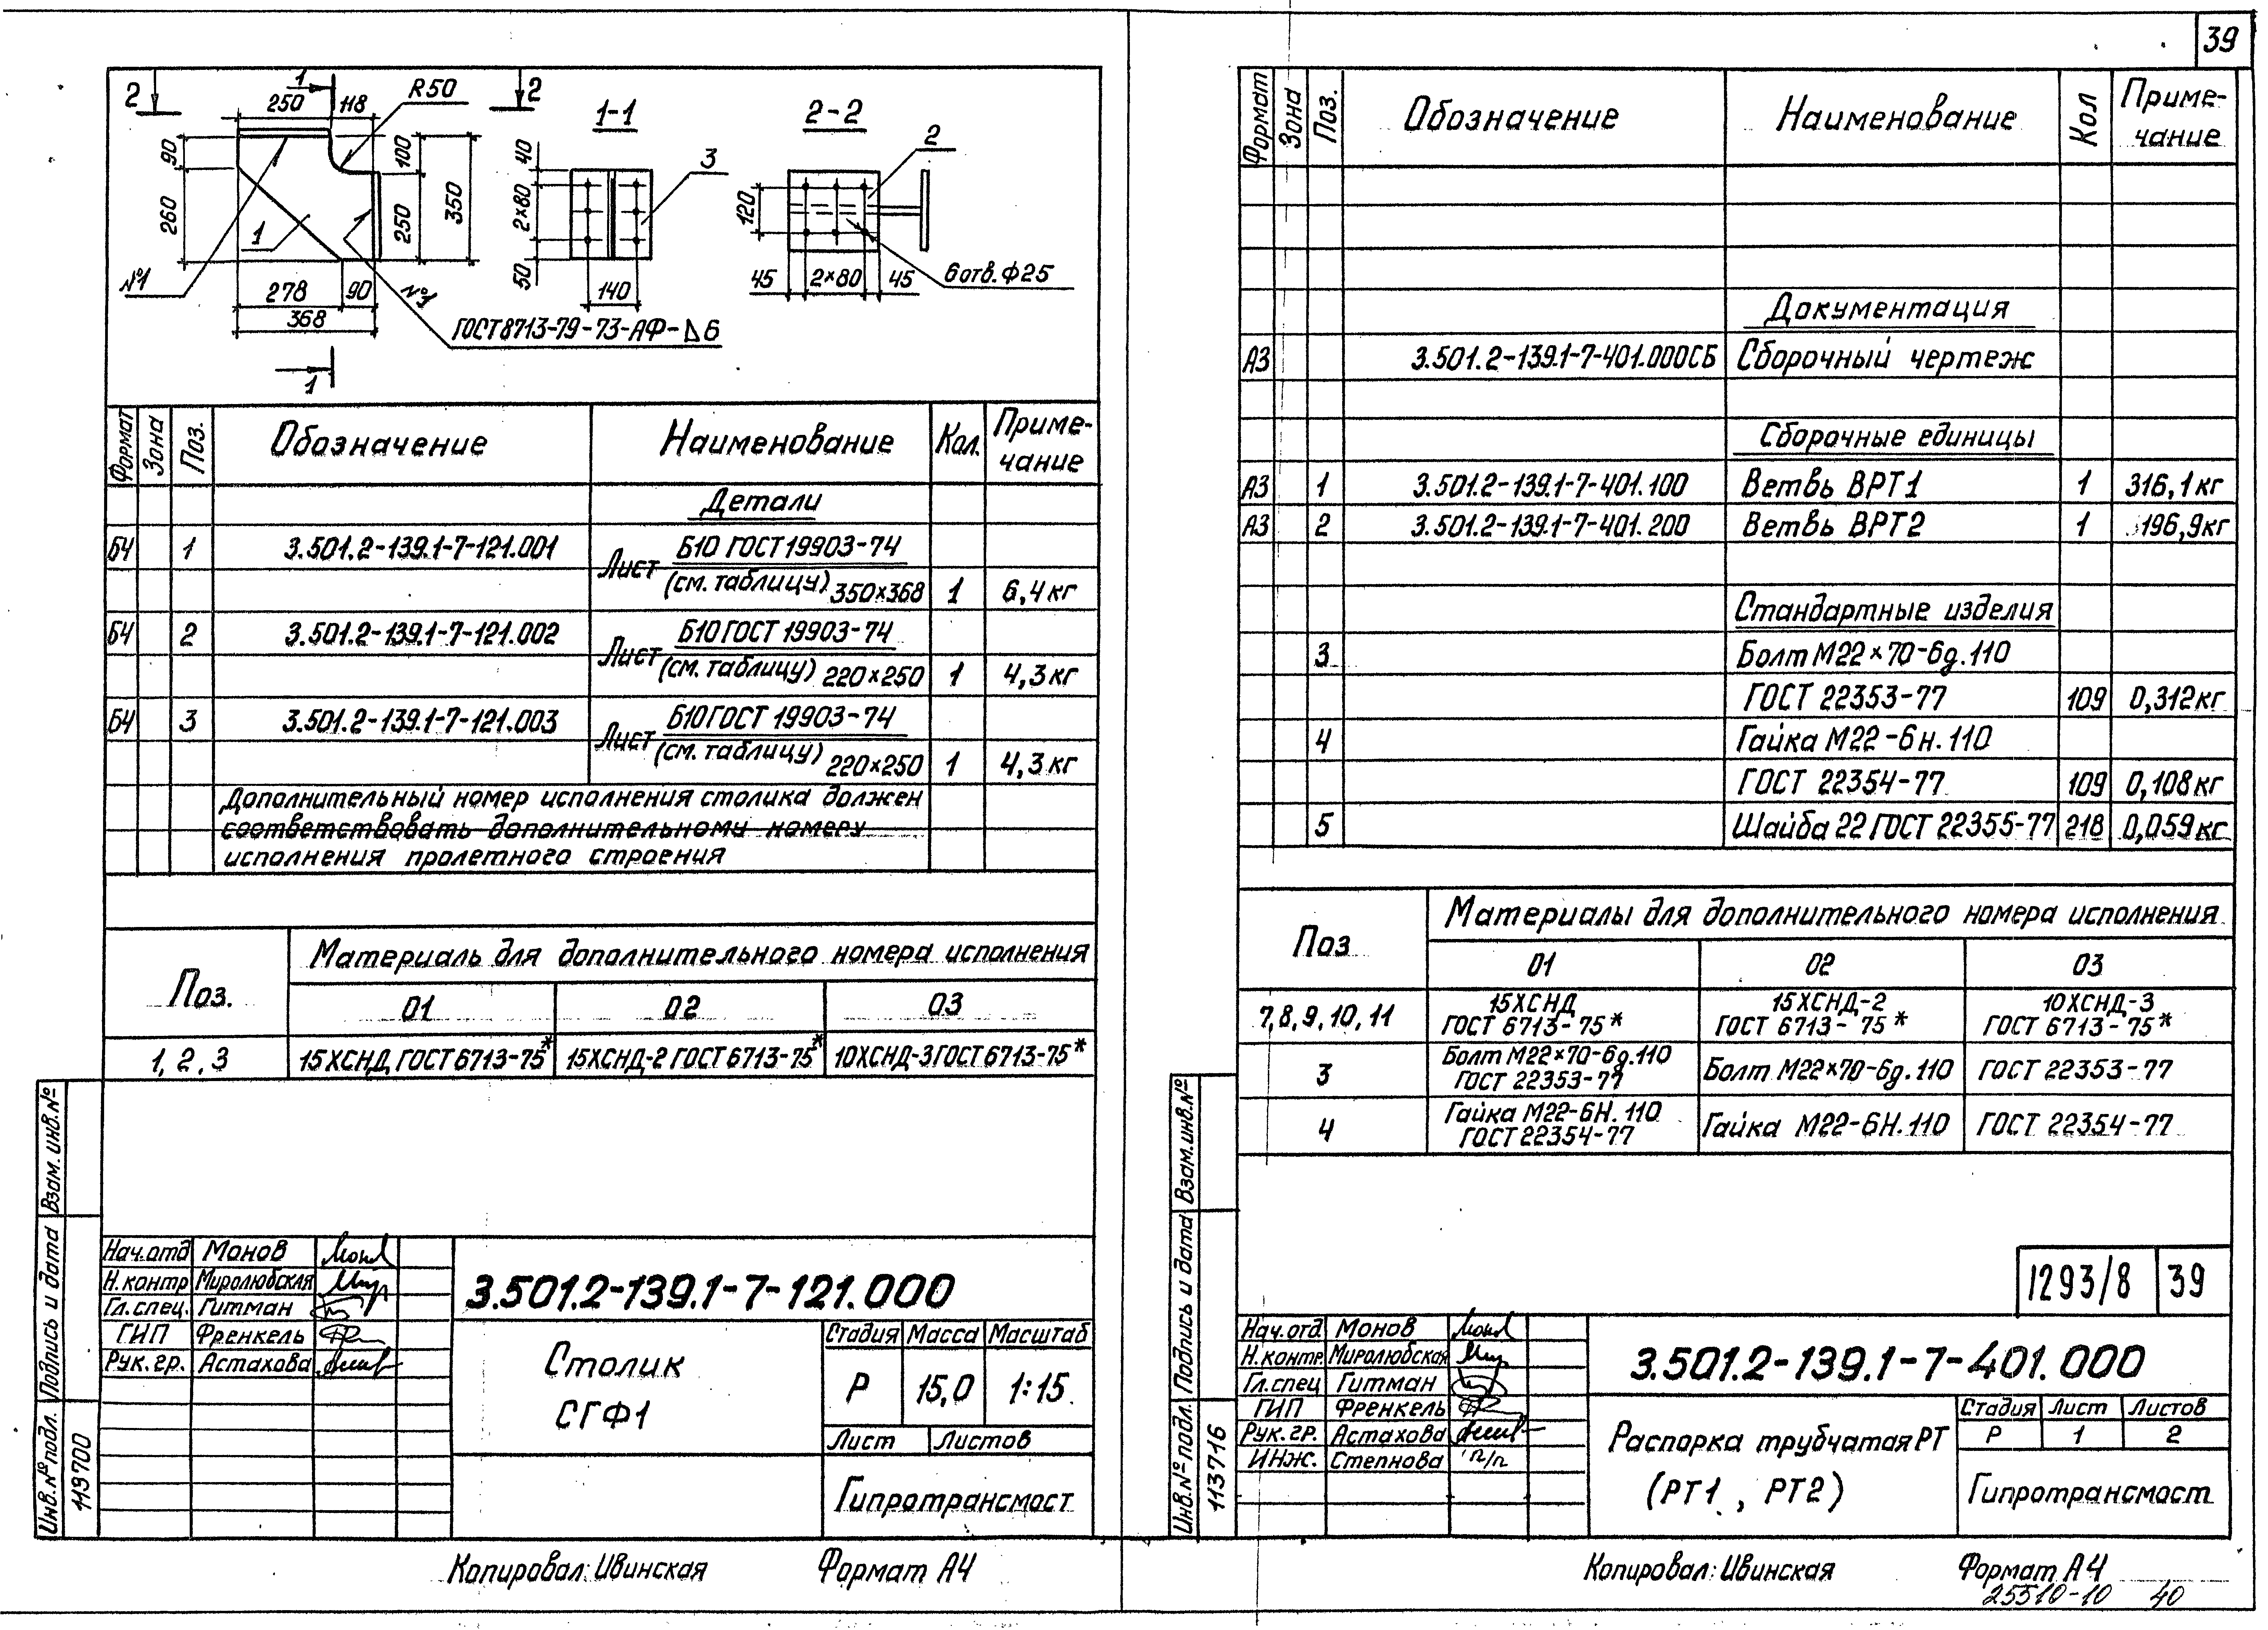 39
2
1
250
118
R50
2
90
260
1
100
250
350
№1
278
90
368
№1
ГОСТ 8713-79-73-АФ-Δ6
1
1-1
40
2×80
50
3
140
2-2
2
120
45
2×80
45
6 отв. Ф25
Формат
Зона
Поз.
Обозначение
Наименование
Кол.
Приме-
чание
Детали
Б4 1 3.501.2-139.1-7-121.001 Лист Б10 ГОСТ 19903-74
(см. таблицу) 350×368 1 6,4 кг
Б4 2 3.501.2-139.1-7-121.002 Лист Б10 ГОСТ 19903-74
(см. таблицу) 220×250 1 4,3 кг
Б4 3 3.501.2-139.1-7-121.003 Лист Б10 ГОСТ 19903-74
(см. таблицу) 220×250 1 4,3 кг
Дополнительный номер исполнения столика должен
соответствовать дополнительному номеру
исполнения пролетного строения
Поз.
Материаль для дополнительного номера исполнения
01 02 03
1, 2, 3 15ХСНД ГОСТ 6713-75* 15ХСНД-2 ГОСТ 6713-75* 10ХСНД-3 ГОСТ 6713-75*
Взам. инв. №
Подпись и дата
Инв. № подл.
113700
Нач. отд Монов
Н. контр Миролюбская
Гл. спец. Гитман
ГИП Френкель
Рук. гр. Астахова
3.501.2-139.1-7-121.000
Столик
СГФ1
Стадия Масса Масштаб
Р 15,0 1:15
Лист Листов
Гипротрансмост
Копировал: Ивинская Формат А4
Формат
Зона
Поз.
Обозначение
Наименование
Кол
Приме-
чание
Документация
А3 3.501.2-139.1-7-401.000СБ Сборочный чертеж
Сборочные единицы
А3 1 3.501.2-139.1-7-401.100 Ветвь ВРТ1 1 316,1 кг
А3 2 3.501.2-139.1-7-401.200 Ветвь ВРТ2 1 196,9 кг
Стандартные изделия
3 Болт М22×70-6g.110
ГОСТ 22353-77 109 0,312 кг
4 Гайка М22-6н.110
ГОСТ 22354-77 109 0,108 кг
5 Шайба 22 ГОСТ 22355-77 218 0,059 кг
Поз
Материалы для дополнительного номера исполнения
01 02 03
7, 8, 9, 10, 11 15ХСНД ГОСТ 6713-75* 15ХСНД-2 ГОСТ 6713-75* 10ХСНД-3 ГОСТ 6713-75*
3 Болт М22×70-6g.110 ГОСТ 22353-77 Болт М22×70-6g.110 ГОСТ 22353-77
4 Гайка М22-6Н.110 ГОСТ 22354-77 Гайка М22-6Н.110 ГОСТ 22354-77
Взам. инв. №
Подпись и дата
Инв. № подл.
113716
1293/8 39
Нач. отд Монов
Н. контр. Миролюбская
Гл. спец Гитман
ГИП Френкель
Рук. гр. Астахова
Инж. Степнова п/п
3.501.2-139.1-7-401.000
Распорка трубчатая РТ
(РТ1, РТ2)
Стадия Лист Листов
Р 1 2
Гипротрансмост
Копировал: Ивинская Формат А4
25510-10 40